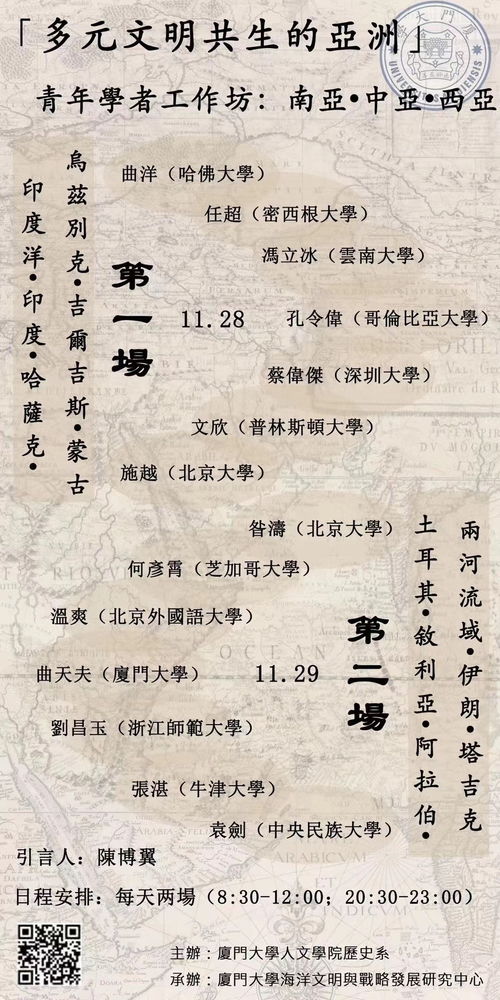 「多元文明共生的亞洲」
青年學者工作坊：南亞•中亞•西亞
印度洋•印度•哈薩克•
烏茲別克•吉爾吉斯•蒙古
第一場
11.28
曲洋（哈佛大學）
任超（密西根大學）
馮立冰（雲南大學）
孔令偉（哥倫比亞大學）
蔡偉傑（深圳大學）
文欣（普林斯頓大學）
施越（北京大學）
昝濤（北京大學）
何彥霄（芝加哥大學）
溫爽（北京外國語大學）
曲天夫（廈門大學）
劉昌玉（浙江師範大學）
張湛（牛津大學）
袁劍（中央民族大學）
11.29
第二場
土耳其•敘利亞•阿拉伯•
兩河流域•伊朗•塔吉克
引言人：陳博翼
日程安排：每天两場（8:30-12:00；20:30-23:00）
主辦：廈門大學人文學院歷史系
承辦：廈門大學海洋文明與戰略發展研究中心